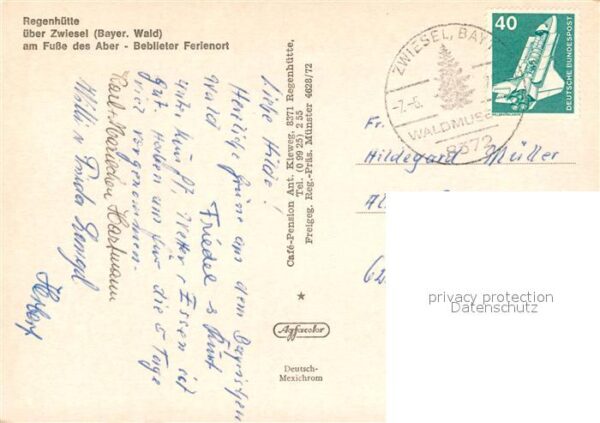 Regenhütte
über Zwiesel (Bayer. Wald)
am Fuße des Aber - Beblieter Ferienort
Liebe Hilde!
Herzliche Grüße aus dem Bayrischen
Wald Friedel & Kurt
Unterkunft, Wetter & Essen ist
gut. Haben uns für die 5 Tage
viel vorgenommen.
Hartmann
Willi
Café-Pension Ant. Kieweg, 8371 Regenhütte,
Tel. (0 99 25) 2 55
Freigeg. Reg.-Präs. Münster 4628/72
Agfacolor
Deutsch-
Mexichrom
ZWIESEL, BAY
-7.-6.
WALDMUSE
8372
40
DEUTSCHE BUNDESPOST
Fr.
Hildegard Müller
privacy protection
Datenschutz